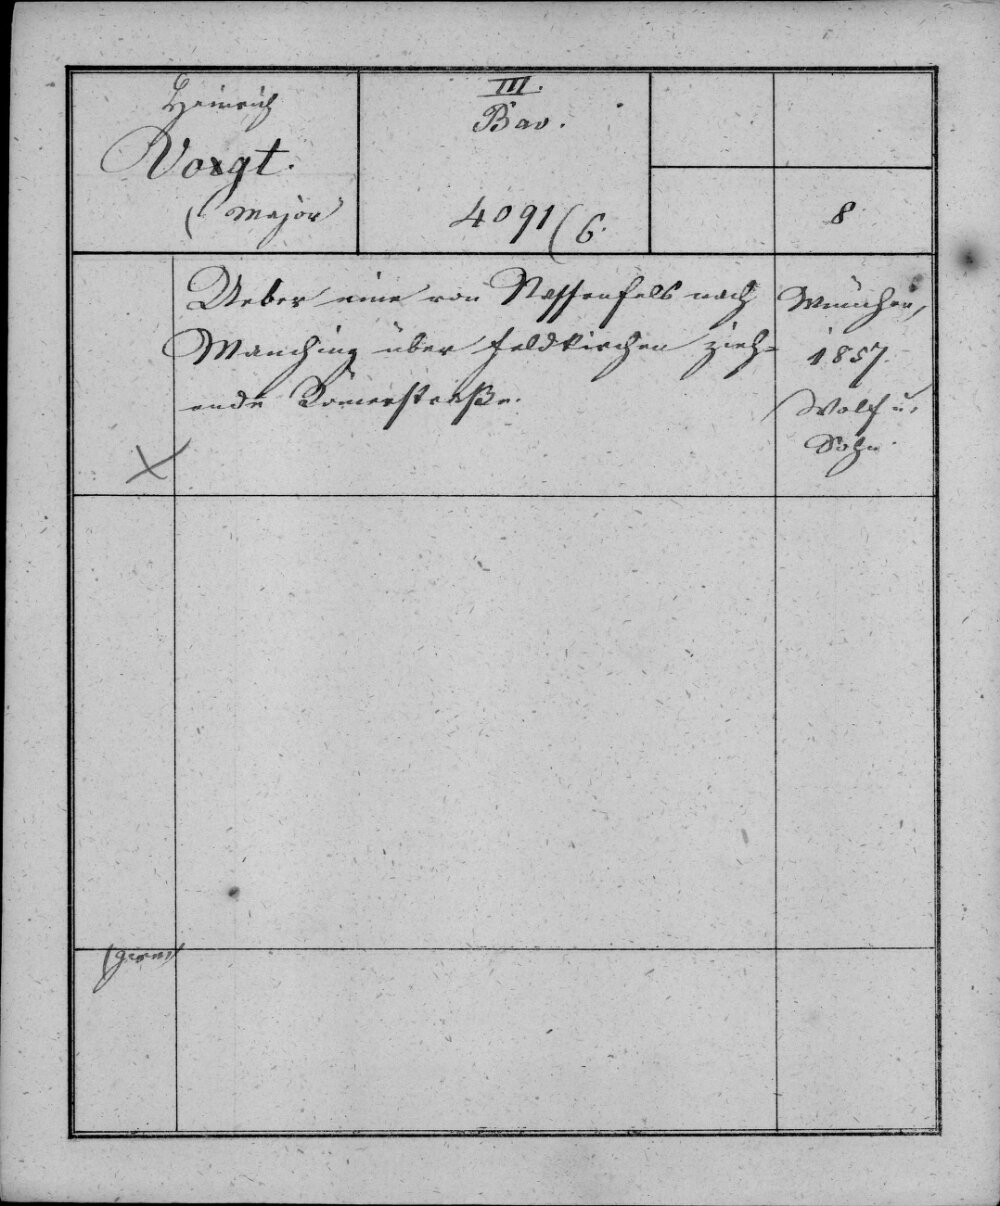 Heinrich
Voigt.
(Major)
III.
Bav.
4091/6.
8
Ueber eine von Nassenfels nach
Manching über Feldkirchen zieh-
ende Römerstraße.
München,
1857.
Wolf u.
Sohn